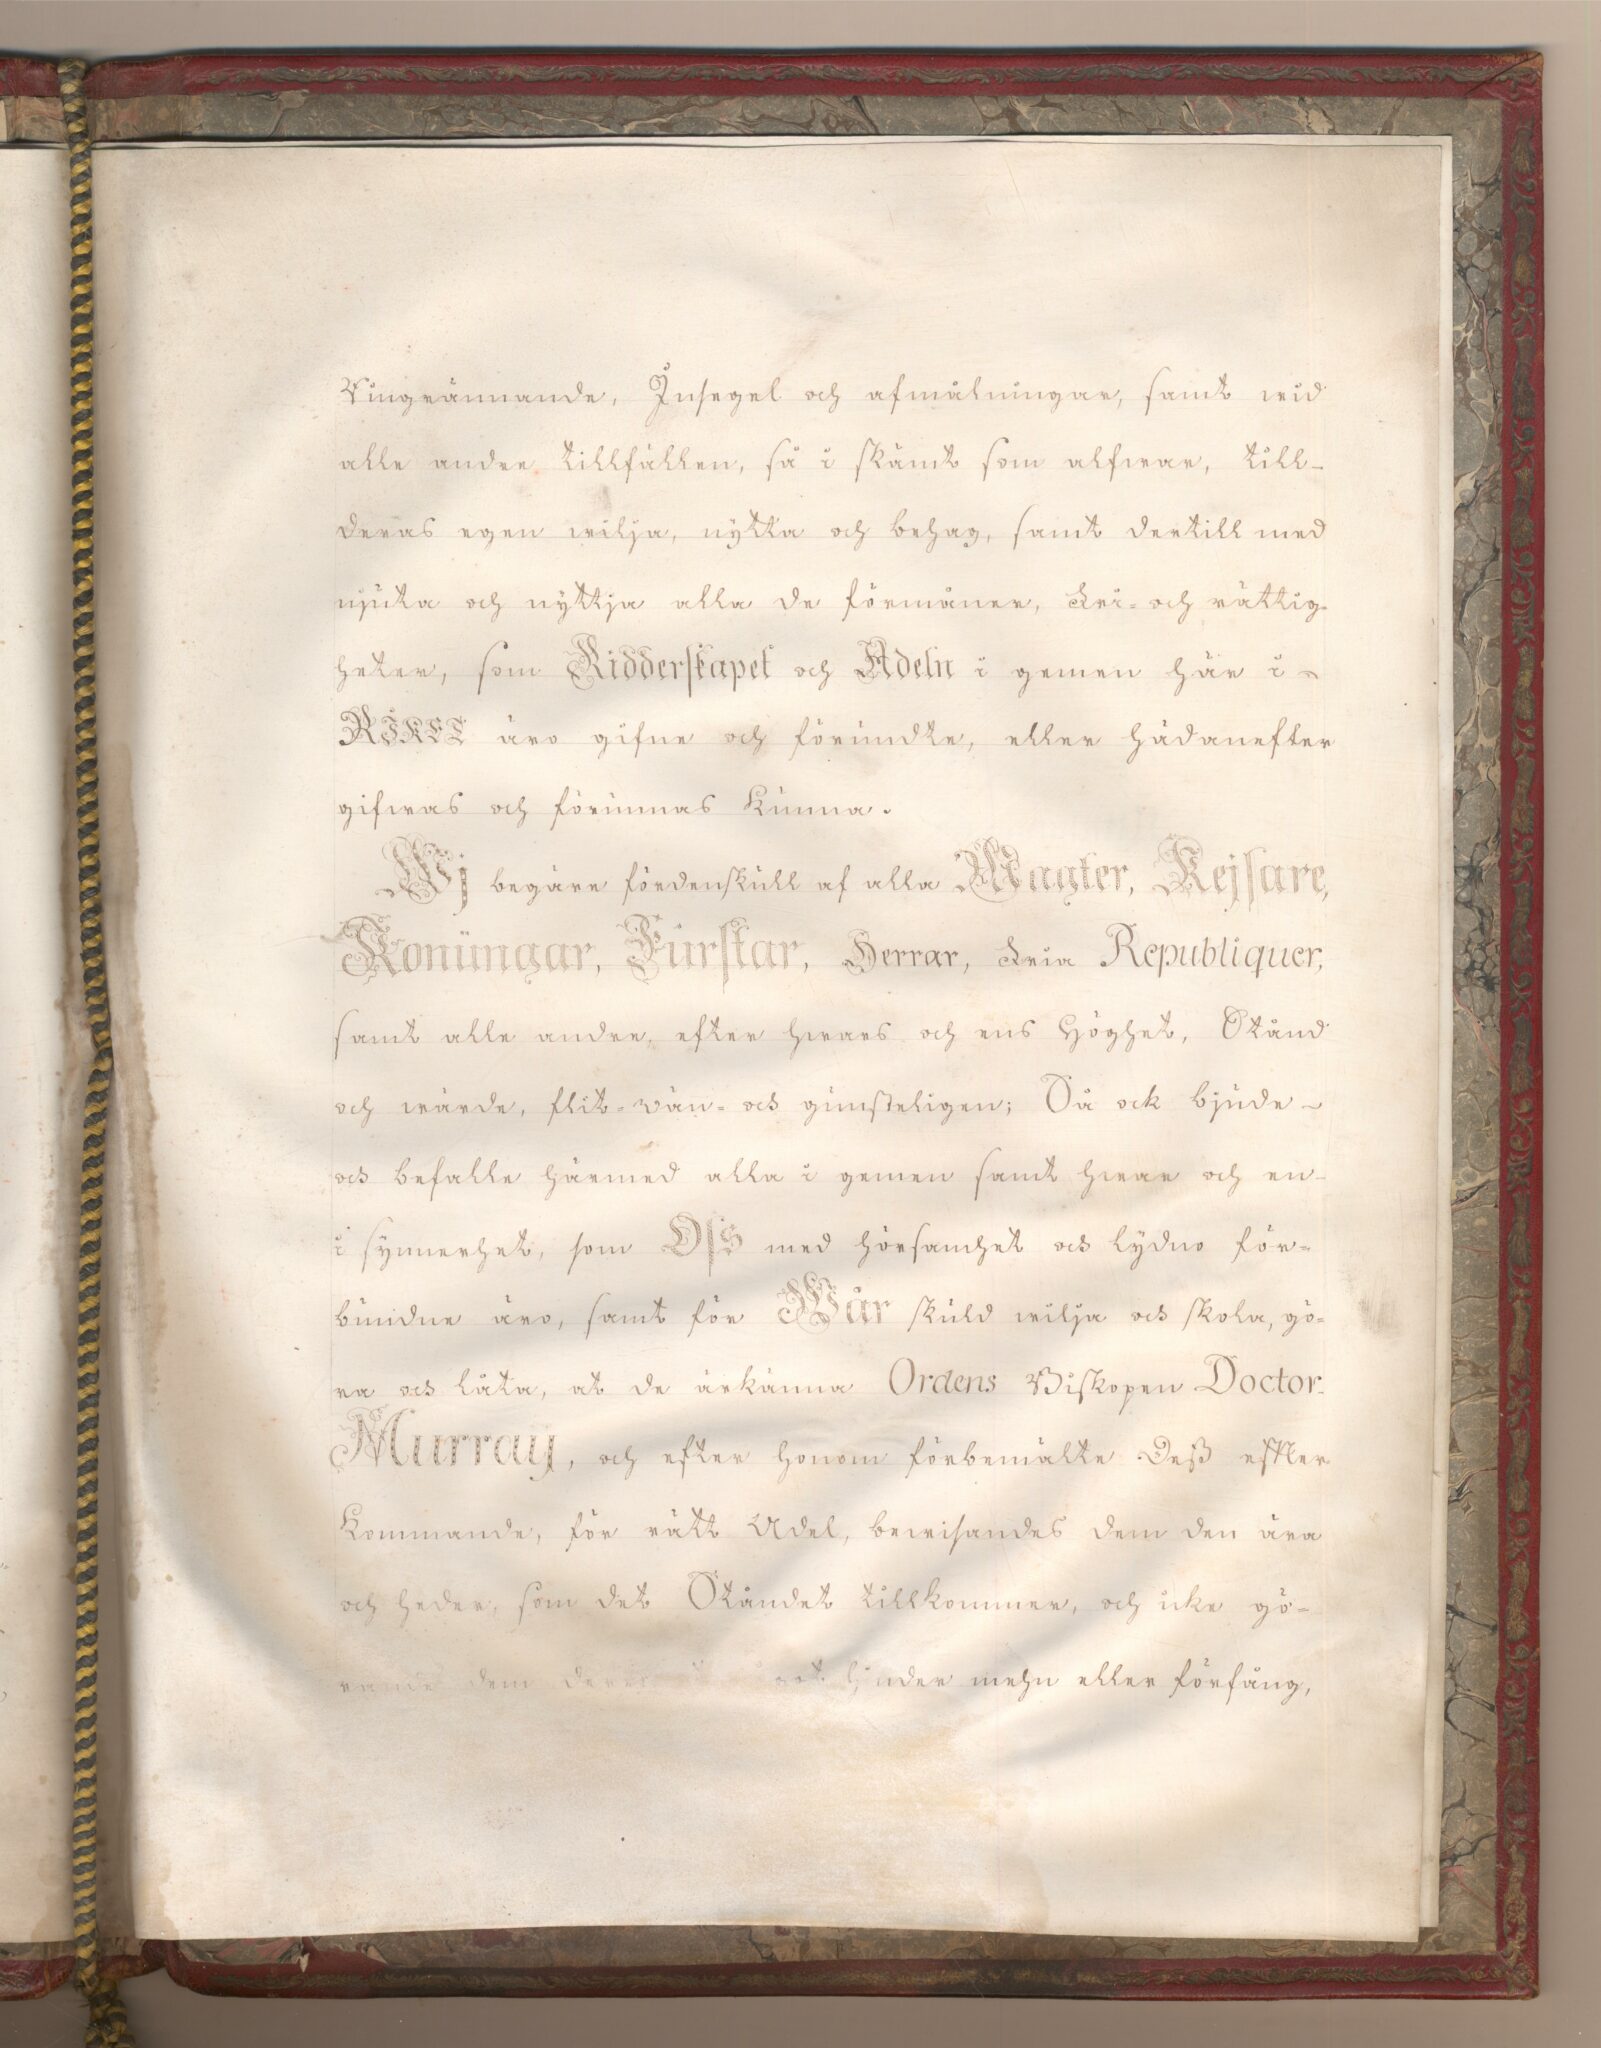 Ringrännande, Insegel och afmålningar, samt wid
alle andre tillfällen, så i skämt som alfwar, till-
deras egen wilja, nÿtta och behag, samt dertill med
njuta och nÿttja alla de förmåner, Fri- och rättig-
heter, som Ridderskapet och Adeln i gemen här i
RIKET äro gifne och förundte, eller hädanefter
gifwas och förunnas kunna.
Wj begäre fördenskull af alla Magter, Kejsare,
Konungar, Furstar, Herrar, Fria Republiquer,
samt alle andre, efter hwars och ens Höghet, Stånd
och wärde, flit- vän- och gunsteligen; Så ock bjude
och befalle härmed alla i gemen samt hwar och en
i sÿnnerhet, som Oss med hörsamhet och lÿdno för-
bundne äro, samt för Wår skuld wilja och skola, gö-
ra och låta, at de ärkänna Ordens Biskopen Doctor
Murray, och efter honom förbemälte Deß efter
kommande, för rätt Adel, bewisandes dem den ära
och heder, som det Ståndet tillkommer, och icke gö-
rande dem hinder mehn eller förfång,